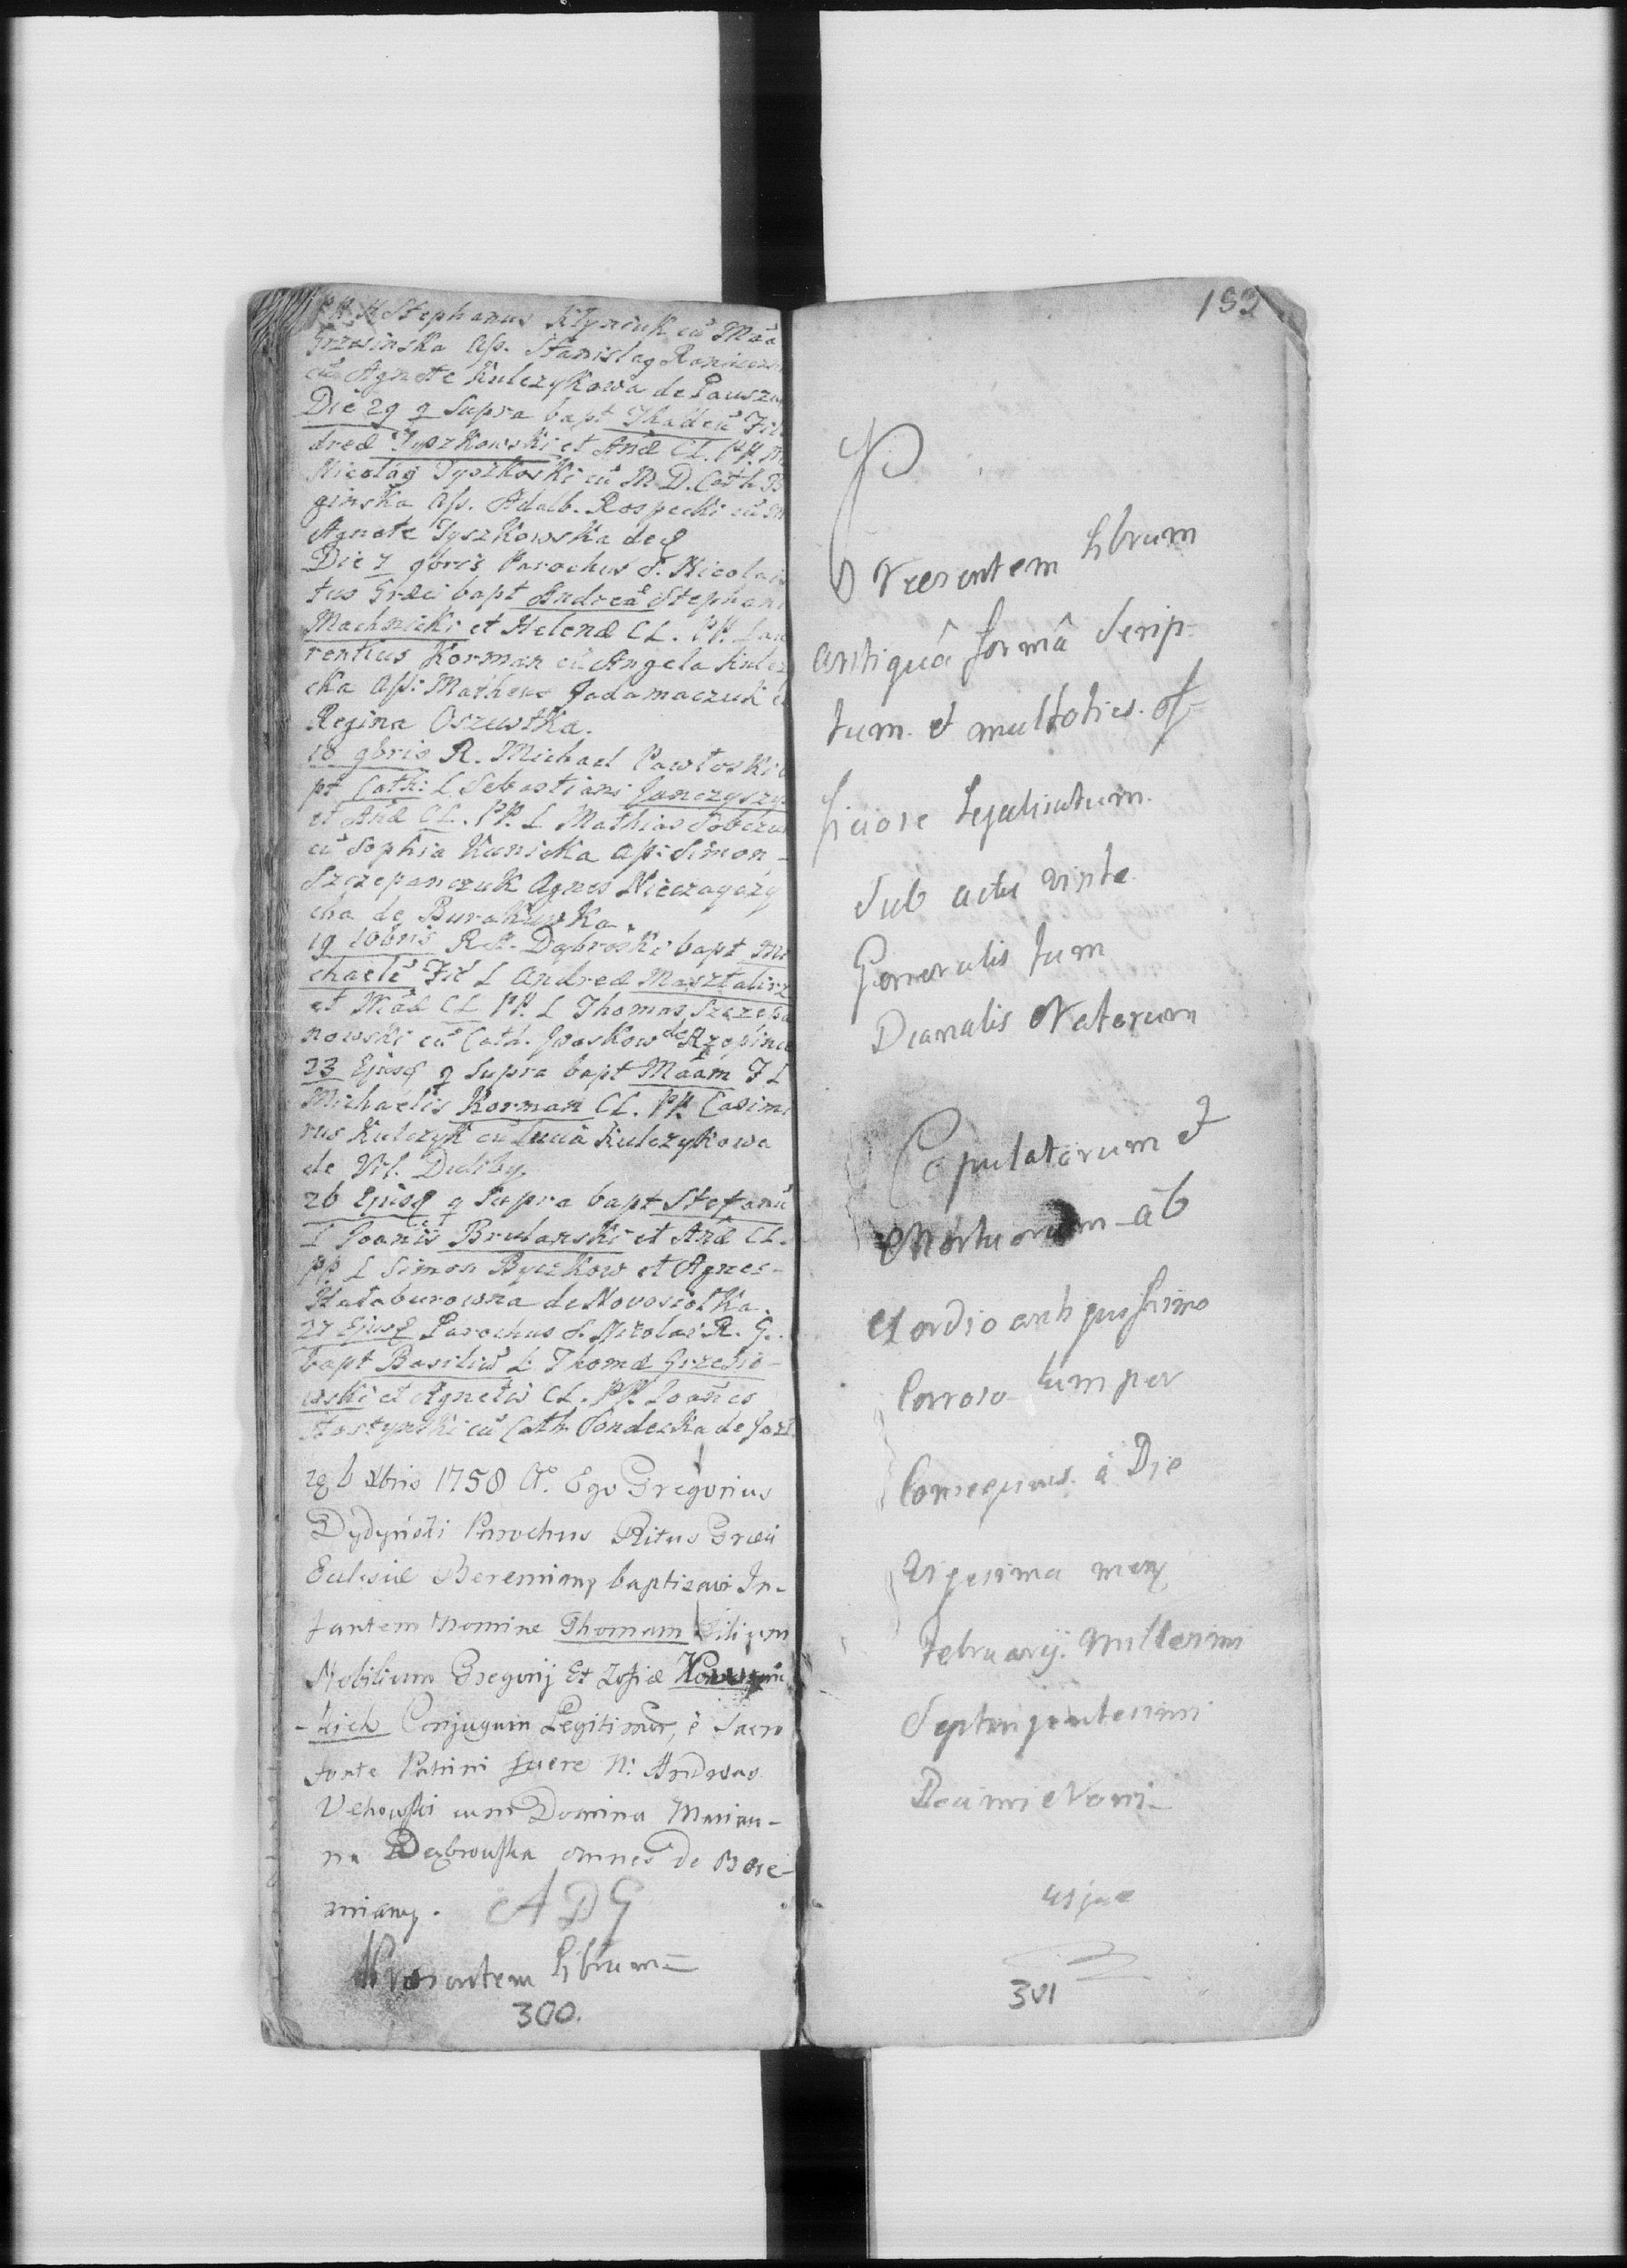 Stephanus Klyniuk cũ Maa
Grzesinska Ass. Stanislaq
cũ Agnete Kulczykowa de Pauszu
Die 29 q Supra bapt Thadeũ Fil
dreæ Tyszkowski et Añæ CL. PP. M
Nicolaq Tyszkoski cũ M D. Cath
ginska Ass. Adalb. Rospecki cũ
Agnete Tyszkowska de
Die 7 gbris Parochus S. Nicolai
tus Græci bapt Andreã Stephani
Machnicki et Helenæ CL. PP. Lau
rentius Korman cũ Angela Kulcz
cka Ass: Matheus Jadamaczuk c
Regina Oszustka.
18 gbris R. Michael Pawłoski b
pt Cath: L Sebastiani Janczyszy
et Añæ CL. PP. L Mathias Sobczu
cũ Sophia Kaniska Ass: Simon
Szczepanczuk Agnes
cha de Burakuwka.
19 10bris R A. Dąbroski bapt Mi
chaelẽ Fil L Andreæ Masztalirz
et Maæ CL PP. L Thomas Szczepa
nowski cũ Cath. Jwaskow de
23 Ejusq q Supra bapt Maam F L
Michaelis Korman CL. PP. Casimi
rus Kulczyk cũ Lucia Kulczykowa
de Vil. Duliby.
26 Ejusq q Supra bapt Stefanũ
L Joanis Brulanski et Añæ CL.
PP. L Simon Byczkow et Agnes
Hałaburowna de Novosiołka.
27 Ejusq Parochus S. Nicolai R. G.
bapt Basiliũ L Thomæ Grzesio-
wski et Agnetis CL. PP. Joañes
Hostynski cũ Cath Sondecka de Jazł
28 Xbris 1758 Aº. Ego Gregorius
Dydyński Parochus Ritus Græci
Eclesiæ Beremiany baptisavi In-
fantem Nomine Thomam Filium
Nobilium Gregorij Et Zofiæ
-kich Conjugum Legitimor, è Sacro
fonte Patrini fuere N: Andreas
cum Domina Marian-
na Dąbrowska omnes de Bere-
miany. ADG
Præsentem librum=
300.
Præsentem librum
antiquâ formâ Scrip-
tum. et multoties of-
ficiose Legalisatum.
Sub actu
Generalis tum
Natorum
Copulatorum et
Mortuorum ab
exordio antiquissimo
Corroso tum per
Consequens à Die
Vigesima
Februarij. Millesimi
Septingentesimi
Decimi Noni
usque
301